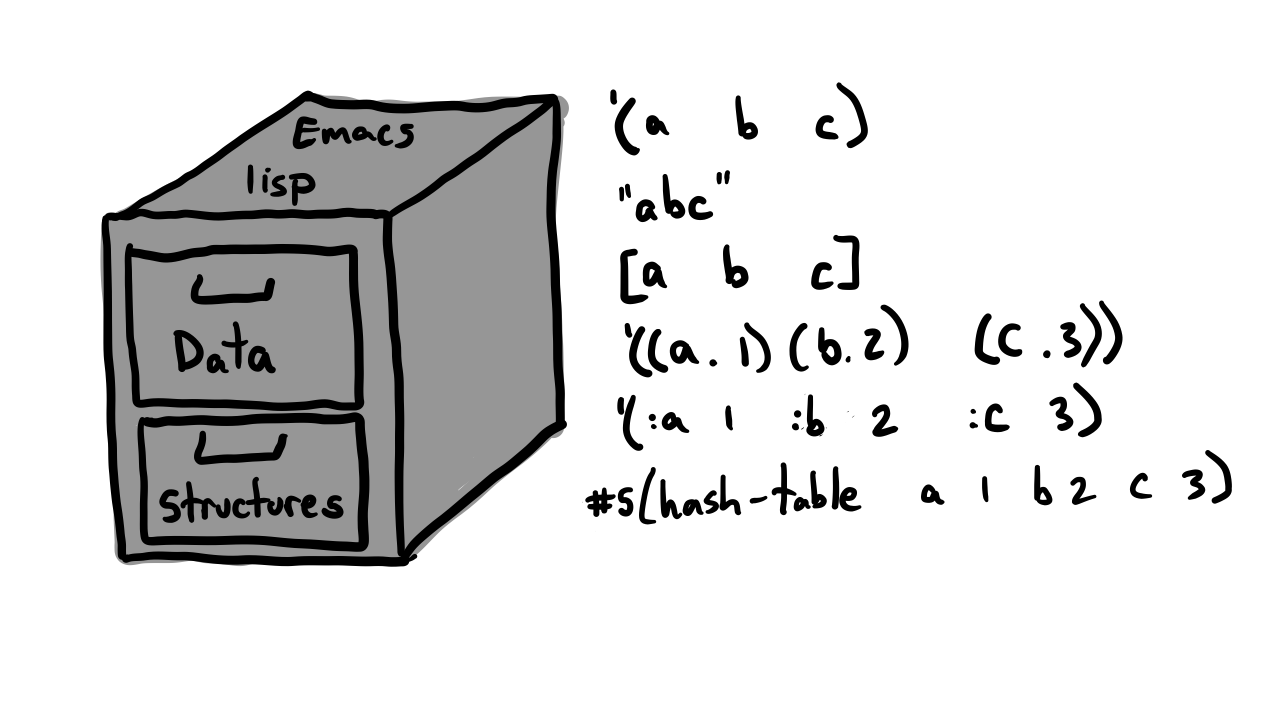 Emacs
lisp
Data
structures
'(a b c)
"abc"
[a b c]
'((a . 1) (b . 2) (c . 3))
'(:a 1 :b 2 :c 3)
#5(hash-table a 1 b 2 c 3)